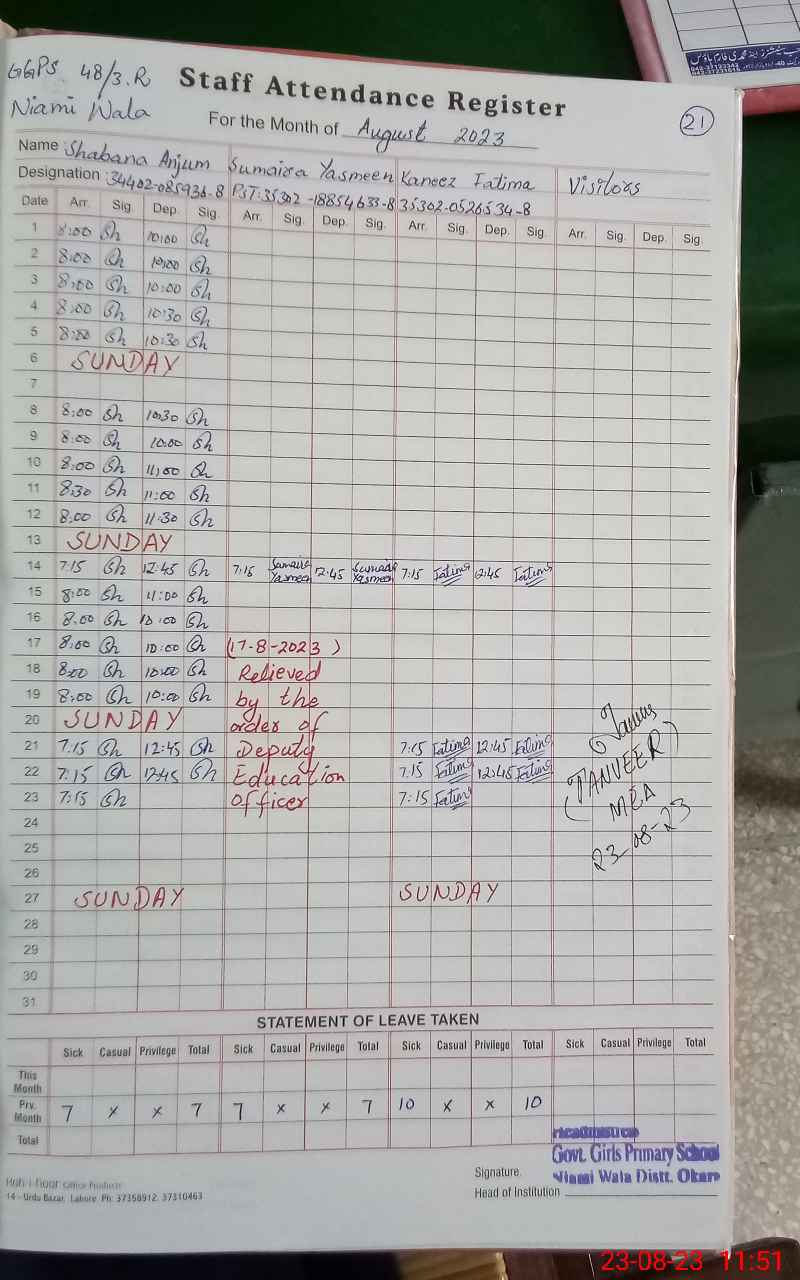 GGPS 48/3.R
Niami Wala
Staff Attendance Register
21
For the Month of August 2023
Name: Shabana Anjum Sumaira Yasmeen Kaneez Fatima Visitors
Designation: 34402-085936-8 PST:35302-18854633-8 35302-0526534-8
Date Arr. Sig. Dep. Sig. Arr. Sig. Dep. Sig. Arr. Sig. Dep. Sig. Arr. Sig. Dep. Sig.
1 8:00 Sh 10:00 Sh
2 8:00 Sh 10:00 Sh
3 8:00 Sh 10:00 Sh
4 8:00 Sh 10:30 Sh
5 8:00 Sh 10:30 Sh
6 SUNDAY
7
8 8:00 Sh 10:30 Sh
9 8:00 Sh 10:00 Sh
10 8:00 Sh 11:00 Sh
11 8:30 Sh 11:00 Sh
12 8:00 Sh 11:30 Sh
13 SUNDAY
14 7:15 Sh 12:45 Sh 7:15 Sumaira Yasmeen 12:45 Sumaira Yasmeen 7:15 Fatima 12:45 Fatima
15 8:00 Sh 11:00 Sh
16 8:00 Sh 10:00 Sh
17 8:00 Sh 10:00 Sh (17-8-2023)
18 8:00 Sh 10:00 Sh Relieved
19 8:00 Sh 10:00 Sh by the
20 SUNDAY order of
21 7:15 Sh 12:45 Sh Deputy 7:15 Fatima 12:45 Fatima
22 7:15 Sh 12:45 Sh Education 7:15 Fatima 12:45 Fatima
23 7:15 Sh officer 7:15 Fatima
(TANVEER)
MEA
23-08-23
24
25
26
27 SUNDAY SUNDAY
28
29
30
31
STATEMENT OF LEAVE TAKEN
Sick Casual Privilege Total Sick Casual Privilege Total Sick Casual Privilege Total Sick Casual Privilege Total
This Month
Prv. Month 7 x x 7 7 x x 7 10 x x 10
Total
Govt. Girls Primary School
Niami Wala Distt. Okara
Signature.
Head of Institution
Koh-i-Noor Office Products
14 - Urdu Bazar, Lahore. Ph: 37358912, 37310463
23-08-23 11:51